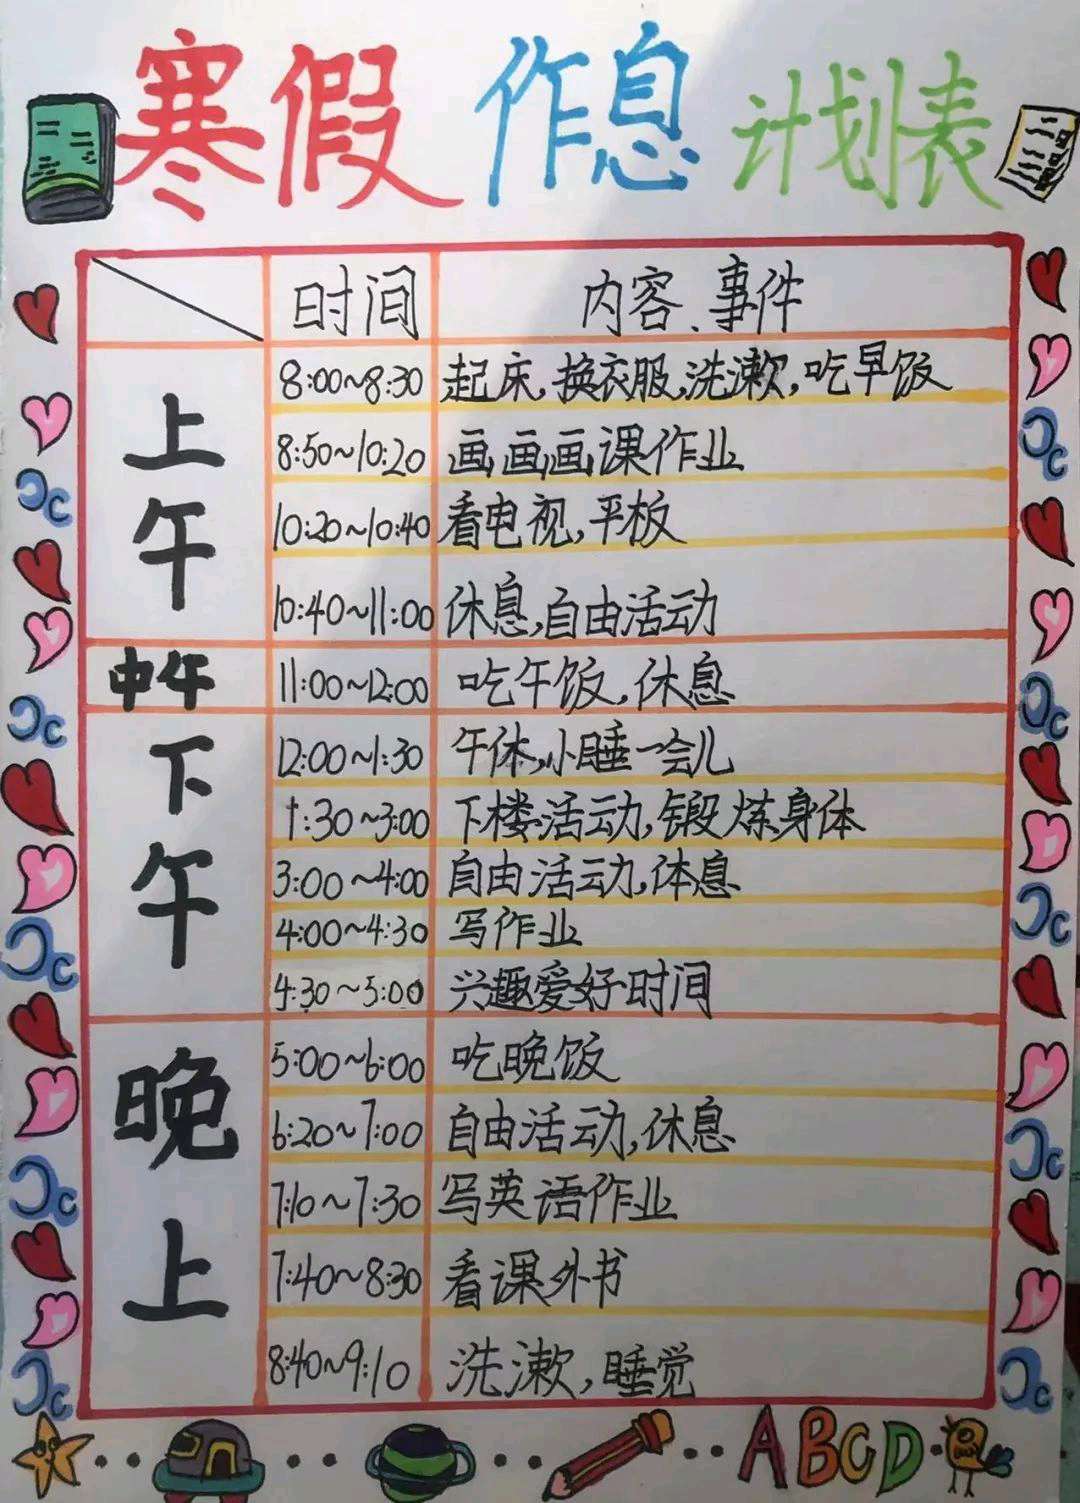 寒假 作息 计划表
时间 内容、事件
上午
8:00~8:30 起床,换衣服,洗漱,吃早饭
8:50~10:20 画画,画课作业
10:20~10:40 看电视,平板
10:40~11:00 休息,自由活动
中午 11:00~12:00 吃午饭,休息
下午
12:00~1:30 午体,小睡一会儿
1:30~3:00 下楼活动,锻炼身体
3:00~4:00 自由活动,体息
4:00~4:30 写作业
4:30~5:00 兴趣爱好时间
晚上
5:00~6:00 吃晚饭
6:20~7:00 自由活动,休息
7:10~7:30 写英语作业
7:40~8:30 看课外书
8:40~9:10 洗漱,睡觉
ABCD